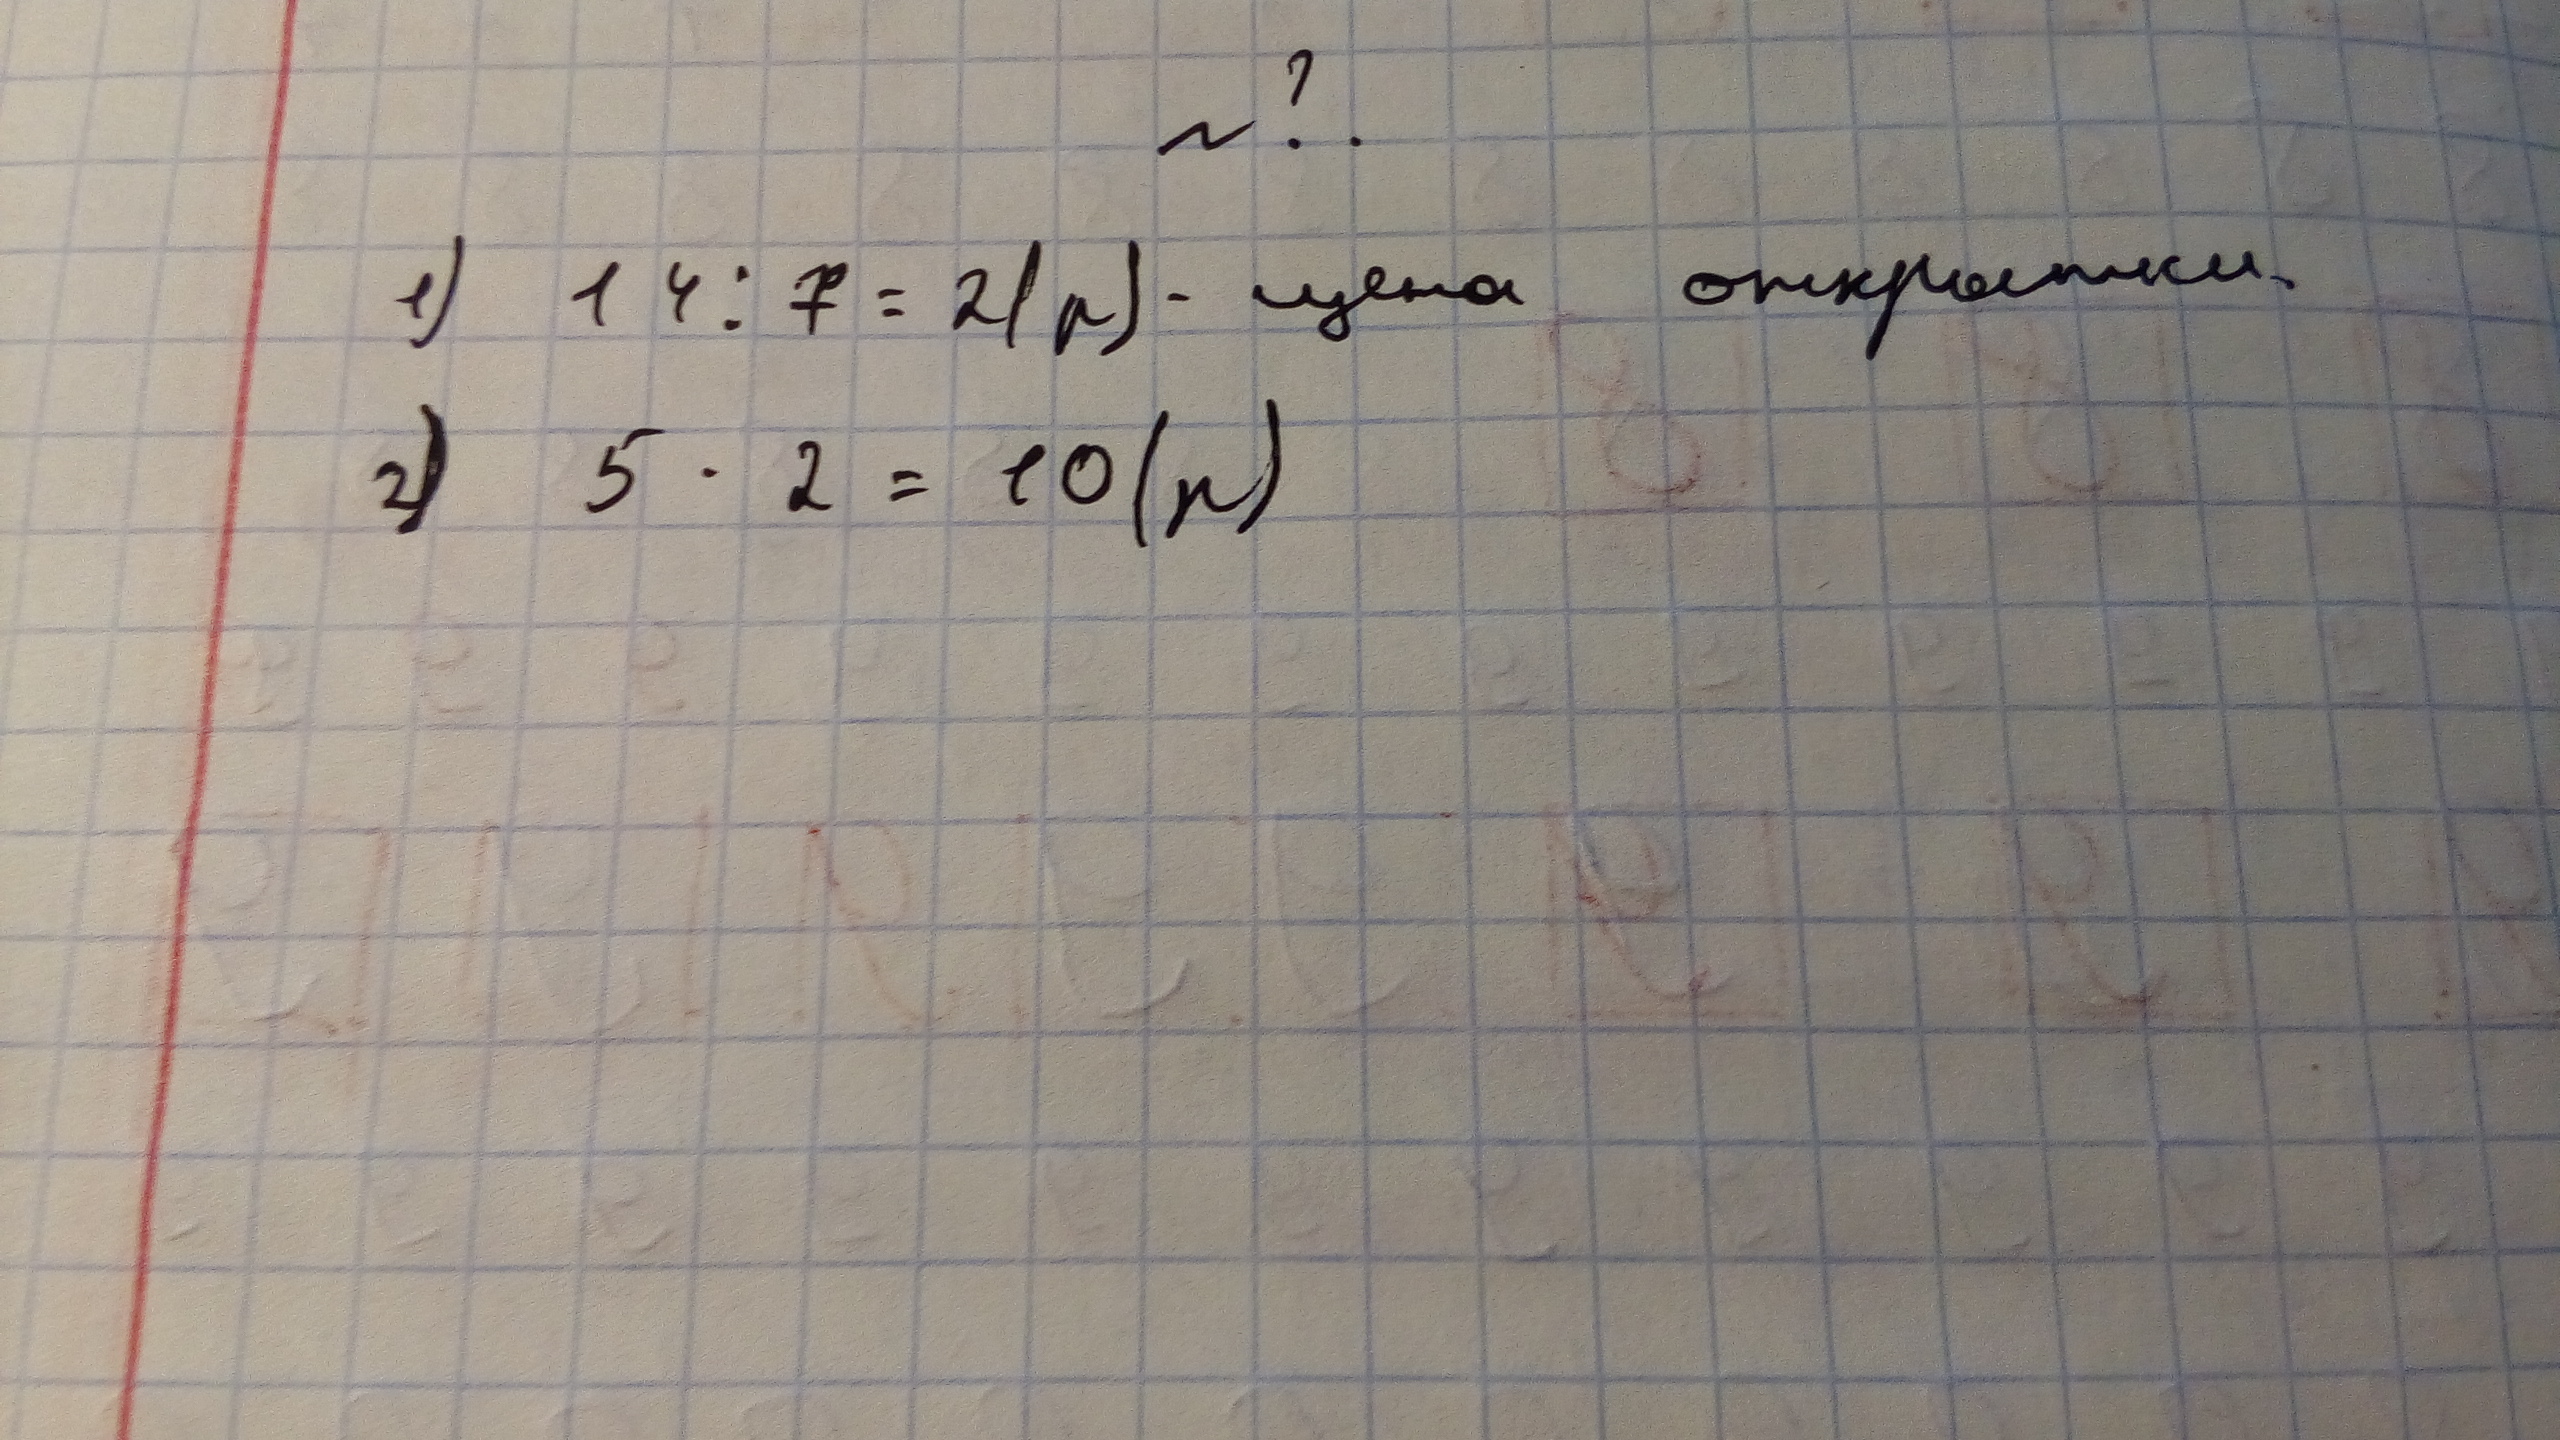 ~ ? .
1) 14 : 7 = 2 (р) - цена открытки.
2) 5 · 2 = 10 (р)